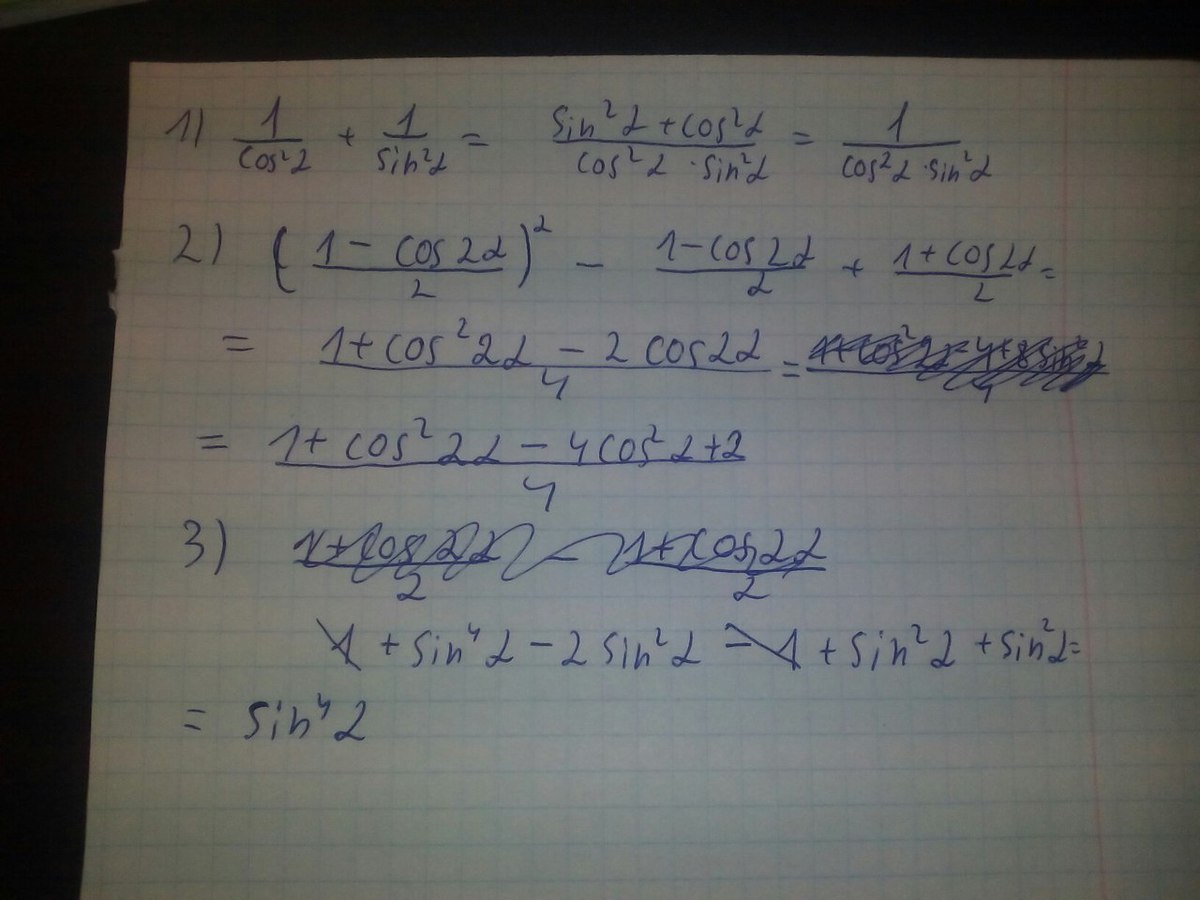 1) 1/cos²α + 1/sin²α = (sin²α + cos²α)/(cos²α · sin²α) = 1/(cos²α · sin²α)
2) ((1 - cos2α)/2)² - (1 - cos2α)/2 + (1 + cos2α)/2 =
= (1 + cos²2α - 2cos2α)/4 =
= (1 + cos²2α - 4cos²α + 2)/4
3) (1 + cos2α)/2 - (1 + cos2α)/2
1 + sin⁴α - 2sin²α - 1 + sin²α + sin²α =
= sin⁴α